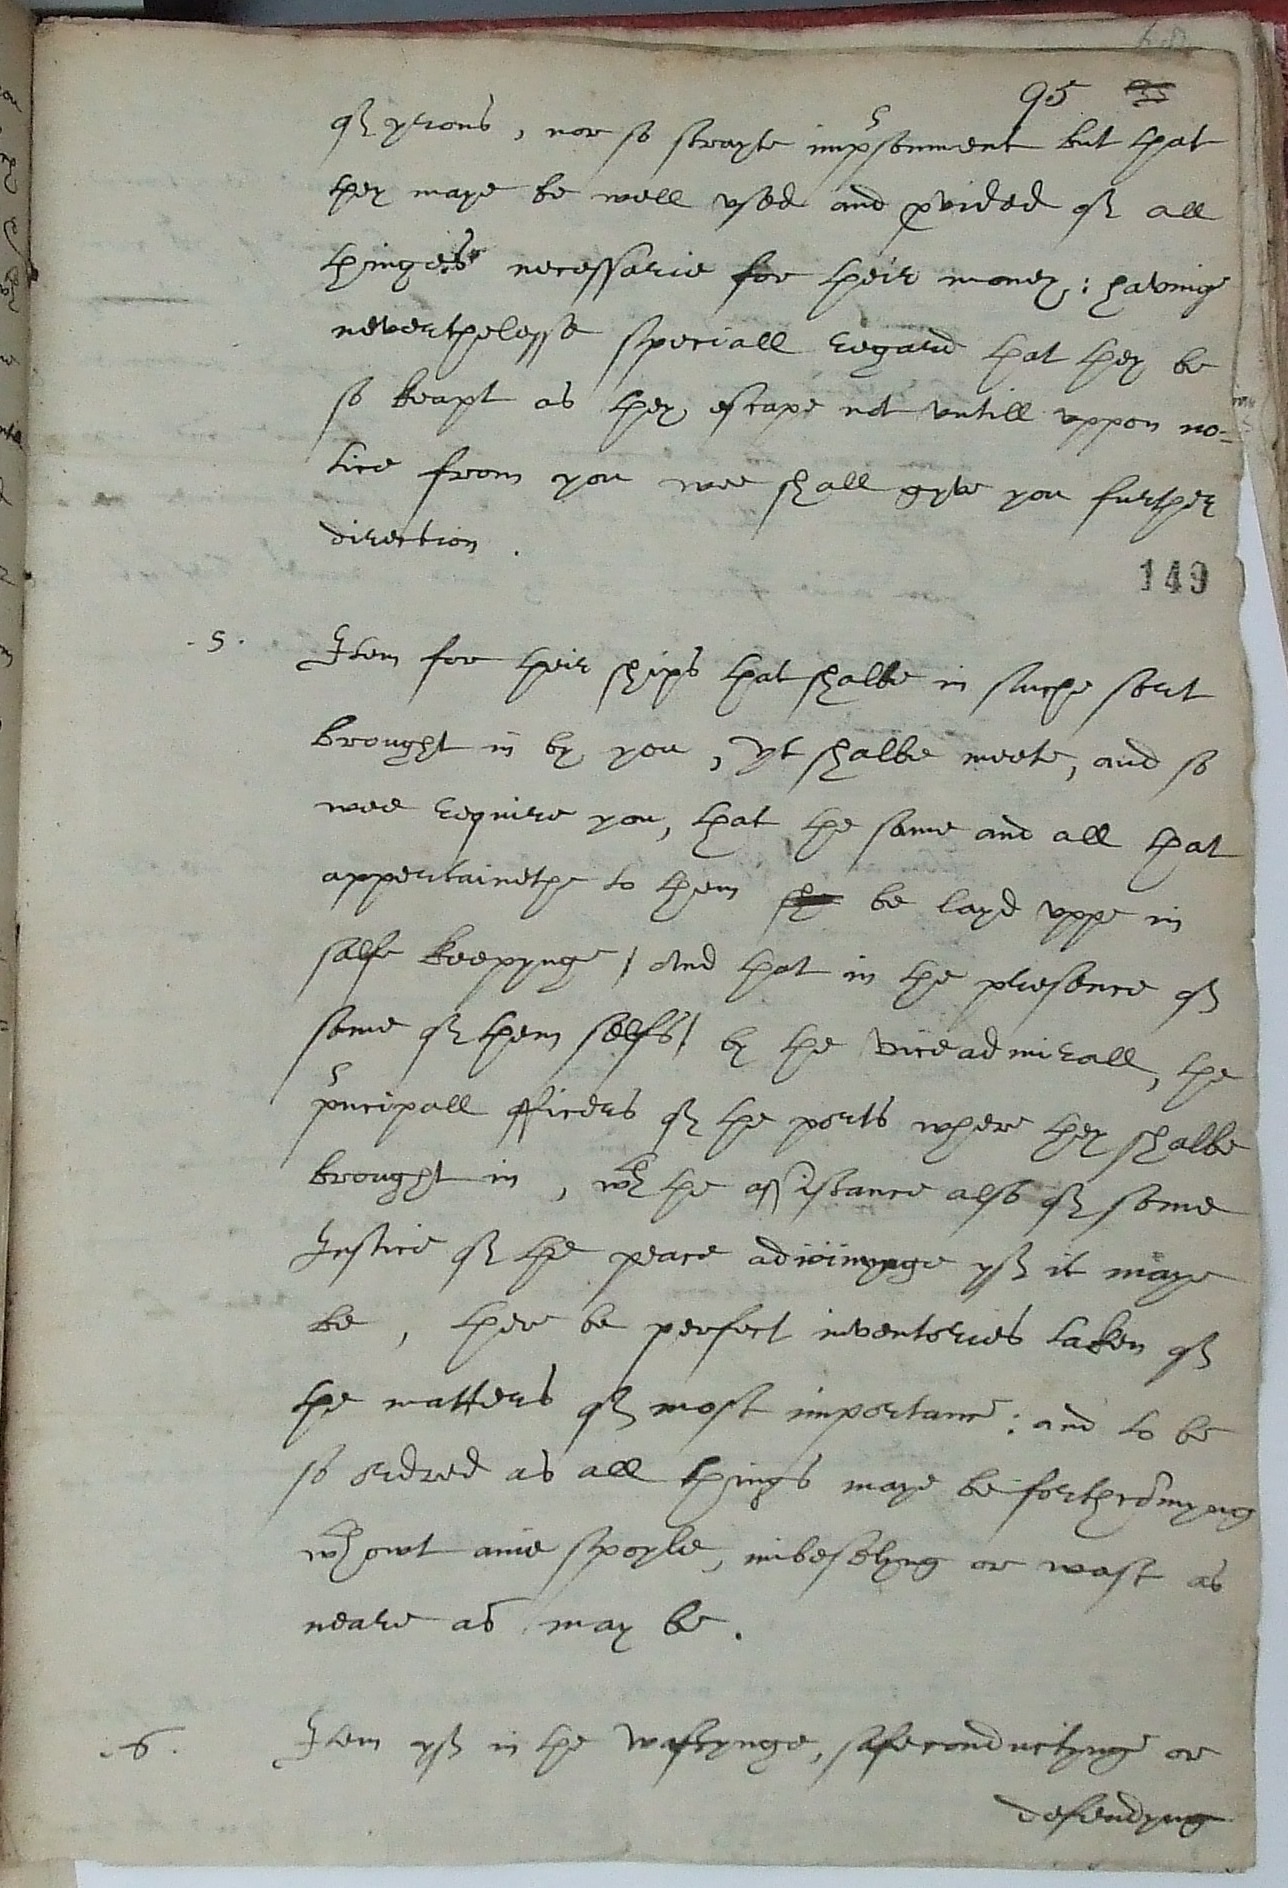 95 55
of yrons, nor so strayte imprsonment but that
they maye be well vsed and pvided of all
thinges necessarie for their money: havinge
neverthelesse speciall regard that they be
so keapt as they escape not vntill vppon no-
tice from you wee shall gyve you further
direction.
149
.5. Item for their ships that shalbe in suche sort
brought in by you, yt shalbe meete, and so
wee require you, that the same and all that
appertainethe to them be layd vppe in
salfe keepynge / And that in the presence of
some of them selfs / by the viceadmirall, the
principall officers of the ports where they shalbe
brought in, wth the assistance also of some
Justice of the peace adioinynge yf it maye
be, there be perfect inventories taken of
the matters of most importance: and to be
so ordred as all things maye be forthcomyng
wthowt anie spoyle, imbeselyng or wast as
neare as may be.
.6. Item yf in the waftynge, safeconductynge or
defendyng